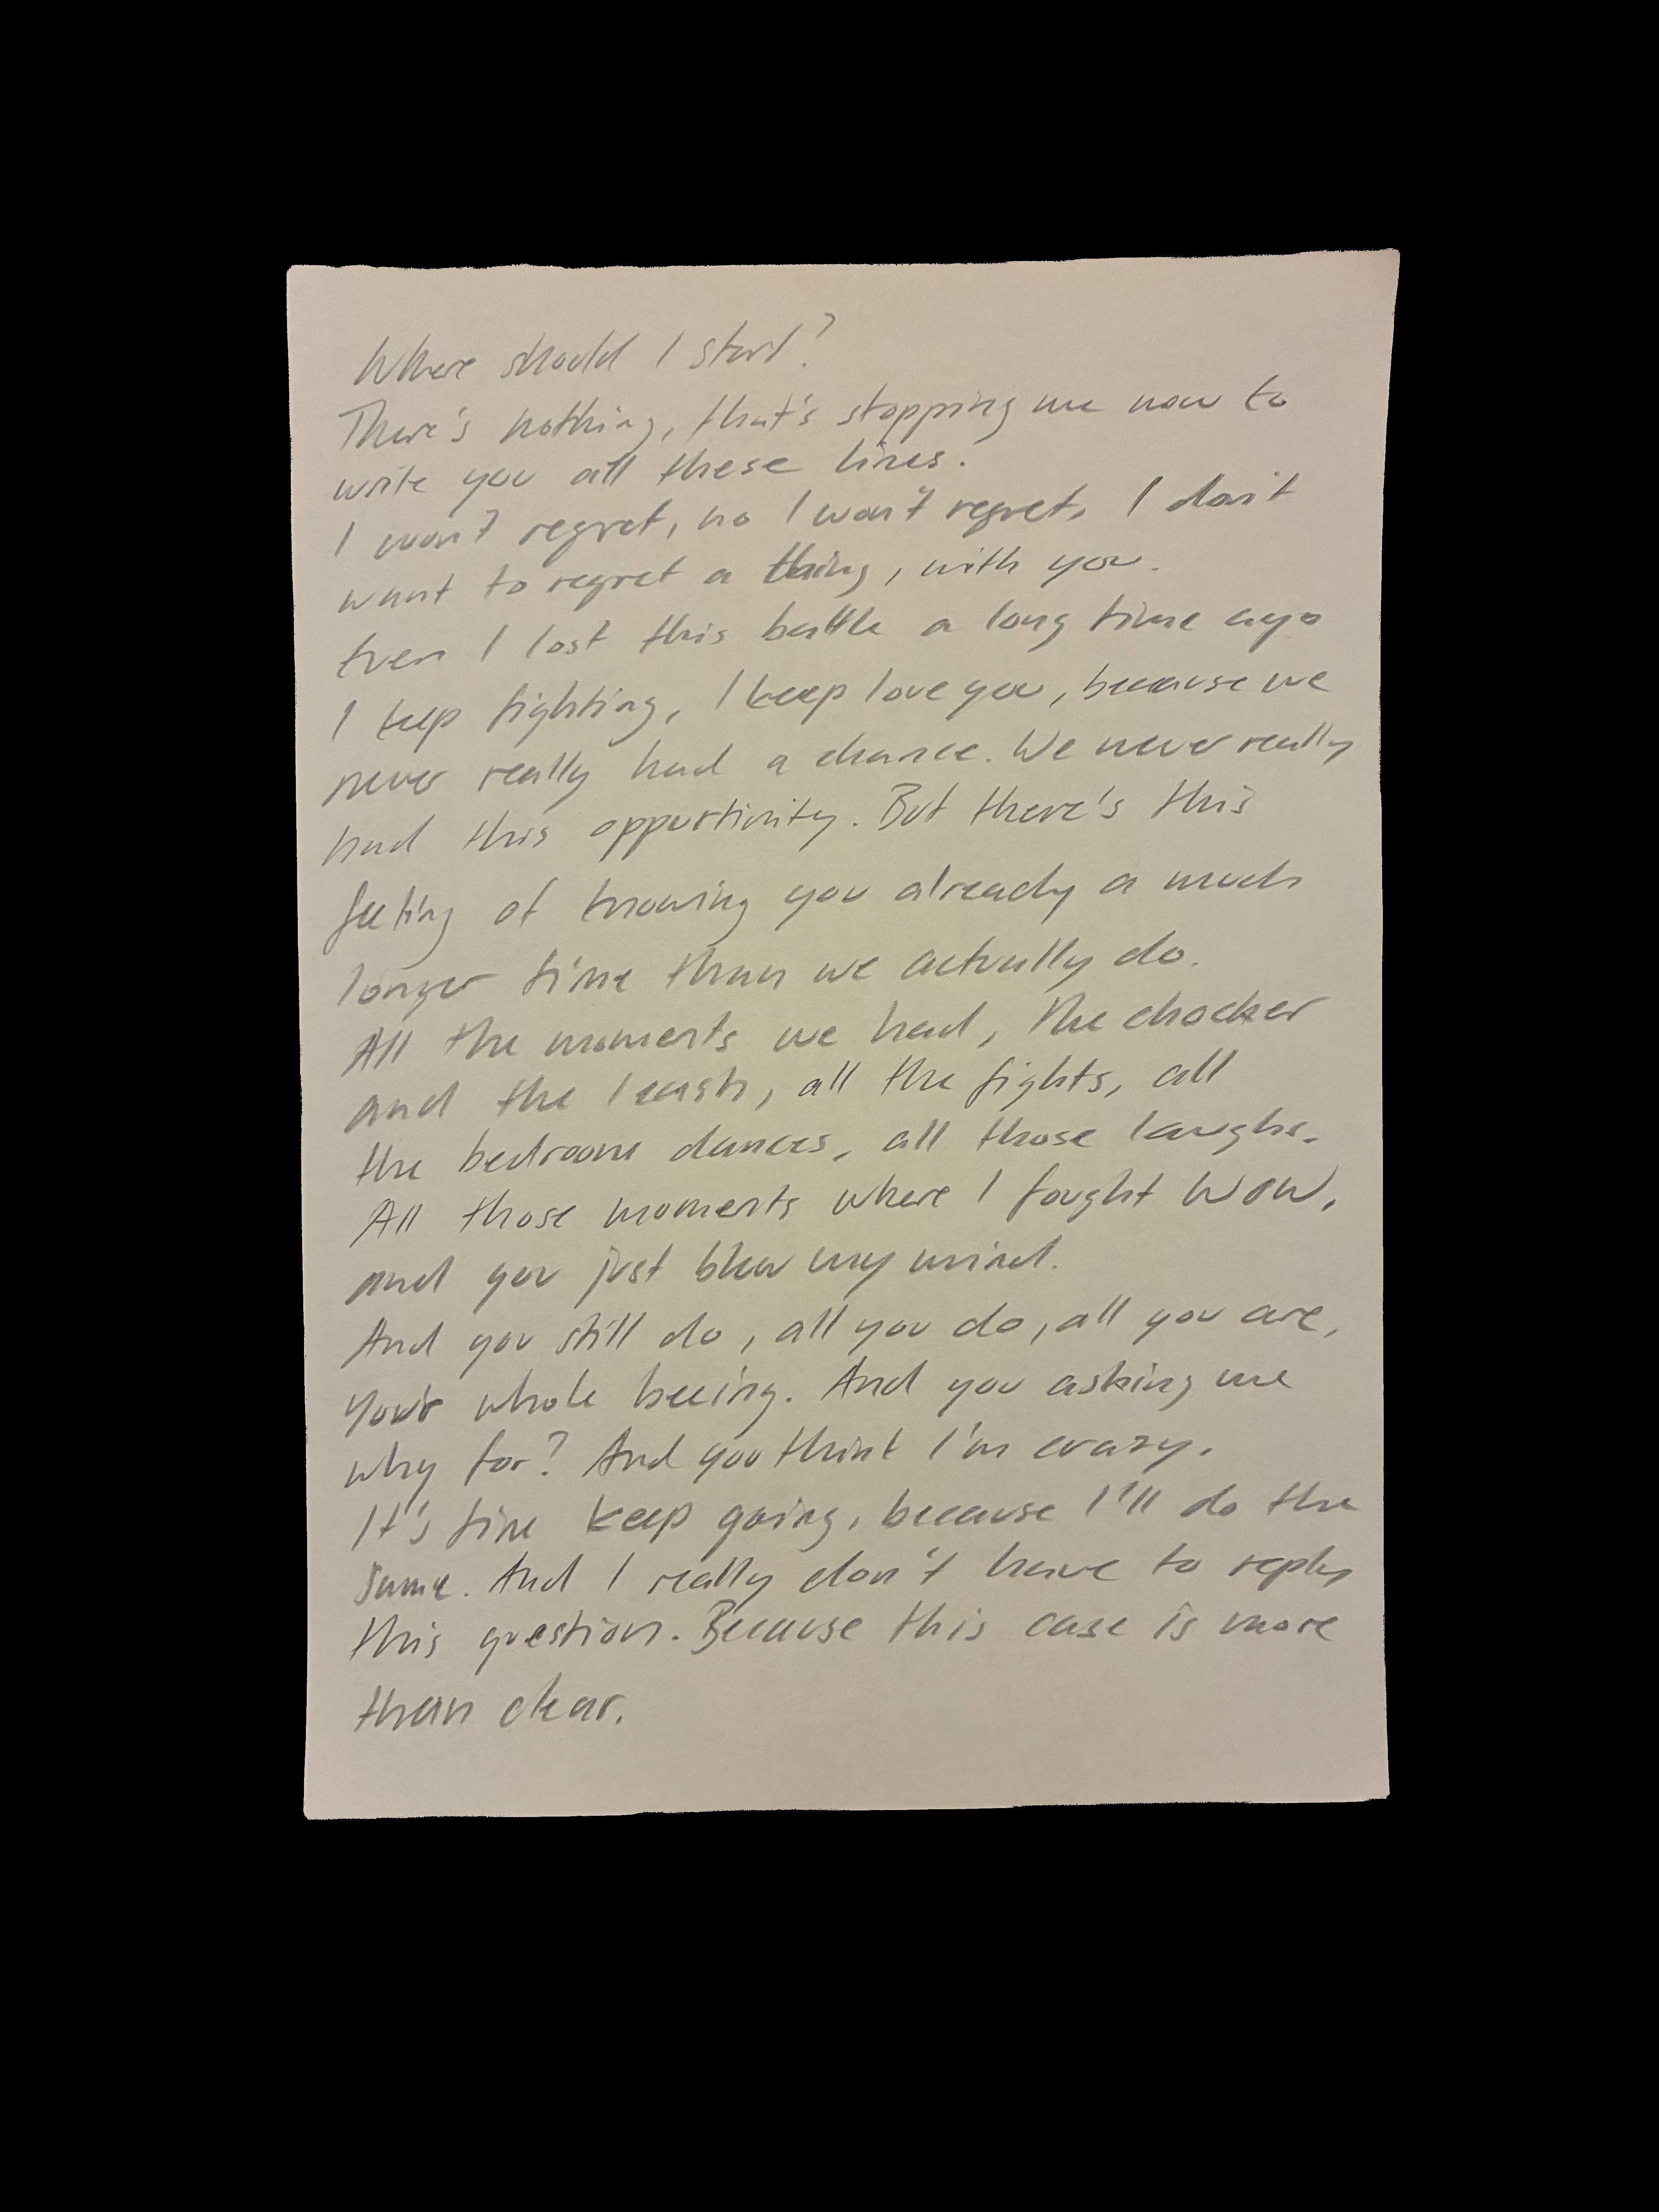 Where should I start?
There's nothing, that's stopping me now to
write you all these lines.
I won't regret, no I won't regret, I don't
want to regret a thing, with you.
Even I lost this battle a long time ago
I keep fighting, I keep love you, because we
never really had a chance. We never really
had this oppurtinity. But there's this
feeling of knowing you already a much
longer time than we actually do.
All the moments we had, the chocker
and the leash, all the fights, all
the bedroom dances, all those laughs.
All those moments where I fought WOW,
and you just blew my mind.
And you still do, all you do, all you are,
your whole beeing. And you asking me
why for? And you think I'm crazy.
It's fine keep going, because I'll do the
same. And I really don't have to reply
this question. Because this case is more
than clear.